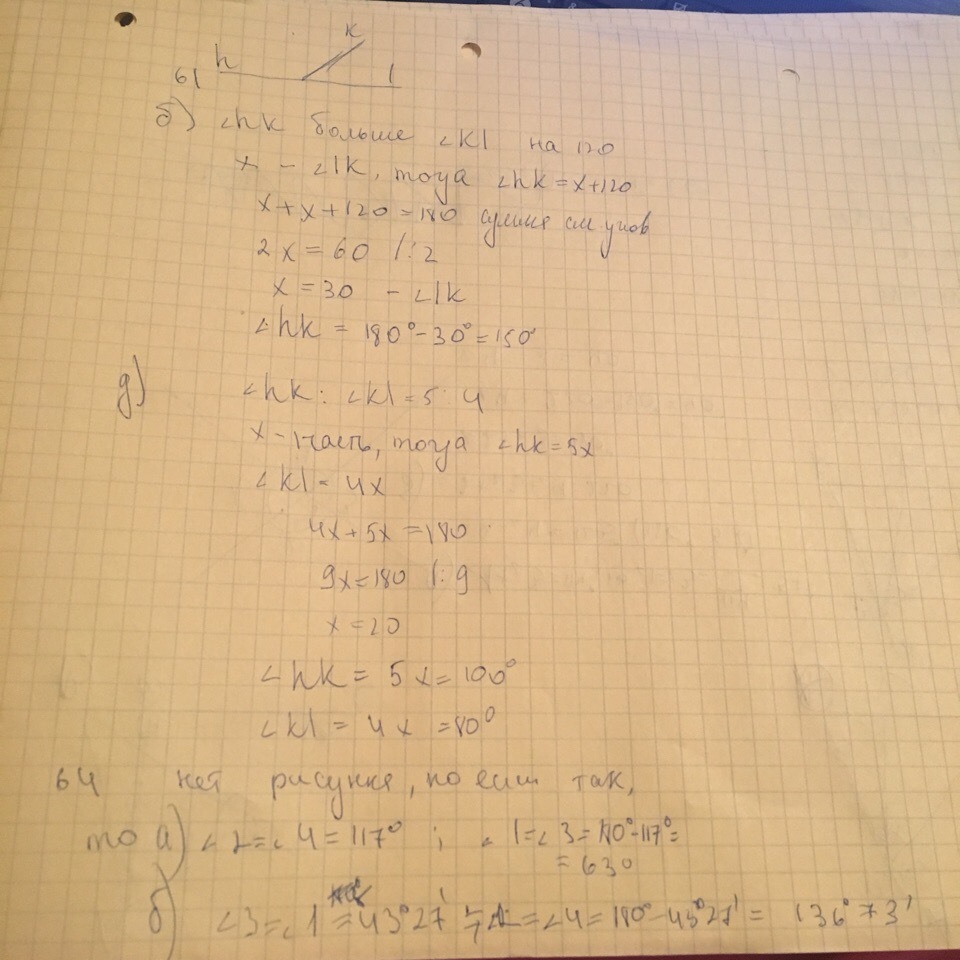 61 h k l
б) ∠hk больше ∠kl на 120
x - ∠lk, тогда ∠hk = x+120
x+x+120=180 сумма см углов
2x=60 /:2
x=30 - ∠lk
∠hk = 180°-30°=150°
д) ∠hk : ∠kl = 5:4
x-1часть, тогда ∠hk=5x
∠kl = 4x
4x+5x=180
9x=180 /:9
x=20
∠hk = 5x=100°
∠kl = 4x =80°
64 нет рисунка, но если так,
то а) ∠2=∠4=117° ; ∠1=∠3=180°-117°=
=630
б) ∠3=∠1=43°27' ∠4=180°-43°27'= 136°73'